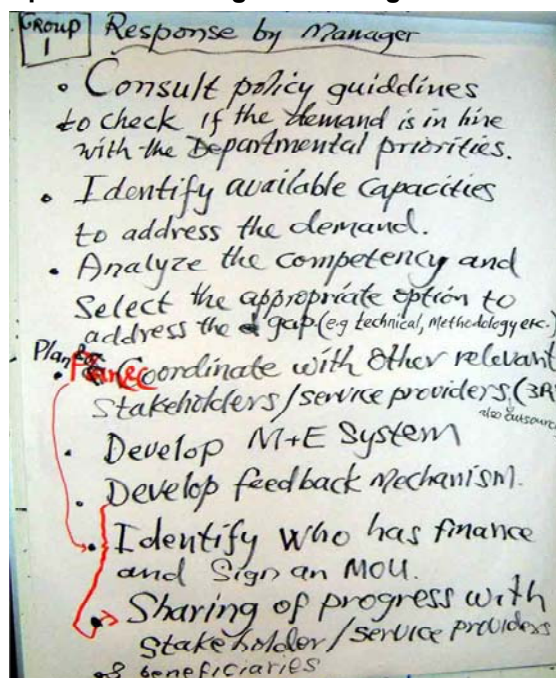 GROUP 1
Response by Manager
• Consult policy guiddines
to check if the demand is in line
with the Departmental priorities.
• Identify available capacities
to address the demand.
• Analyze the competency and
Select the appropriate option to
address the gap (e.g technical, Methodology etc.)
Plan &
• Coordinate with other relevant
Stakeholders/service providers (3R
also outsource
• Develop M+E System
• Develop feedback Mechanism.
• Identify who has finance
and Sign an MOU.
• Sharing of progress with
Stakeholder/service providers
& beneficiaries